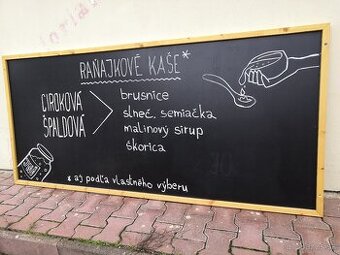 RAŇAJKOVÉ KAŠE*
CIROKOVÁ
ŠPALDOVÁ
brusnice
slneč. semiačka
malinový sirup
škorica
* aj podľa vlastného výberu